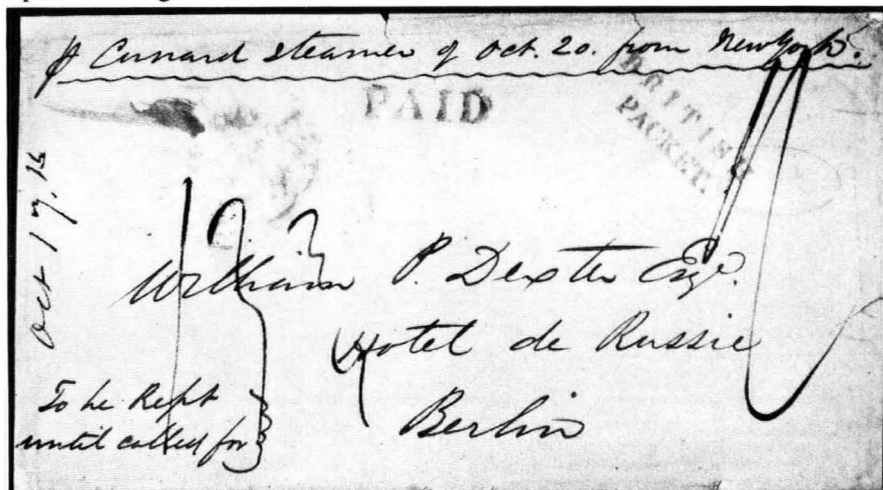 ₰ Cunard Steamer of Oct. 20. from New York.
PAID
BRITISH
PACKET.
Oct 17.
William P. Dexter Esqr.
Hotel de Russie
Berlin
To be Kept
until called for